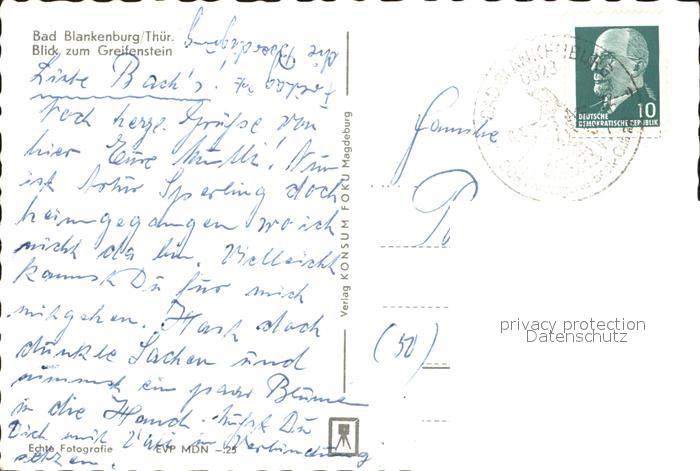 Bad Blankenburg/Thür.
Blick zum Greifenstein
Liebe Bach's!
Noch herzl. Grüße von
hier Eure Mutti! Nun
ist Artur Sperling doch
heimgegangen wo ich
nicht da bin. Vielleicht
kannst Du für mich
mitgehen. Hast doch
dunkle Sachen und
nimmst ein paar Blumen
in die Hand. Mußt Du
Dich mit Vati in Verbindung
setzen.
die Beerdigung
Echte Fotografie
EVP MDN -.25
Verlag KONSUM FOKU Magdeburg
BAD BLANKENBURG
6823
10
DEUTSCHE
DEMOKRATISCHE REPUBLIK
Familie
(50)
privacy protection
Datenschutz